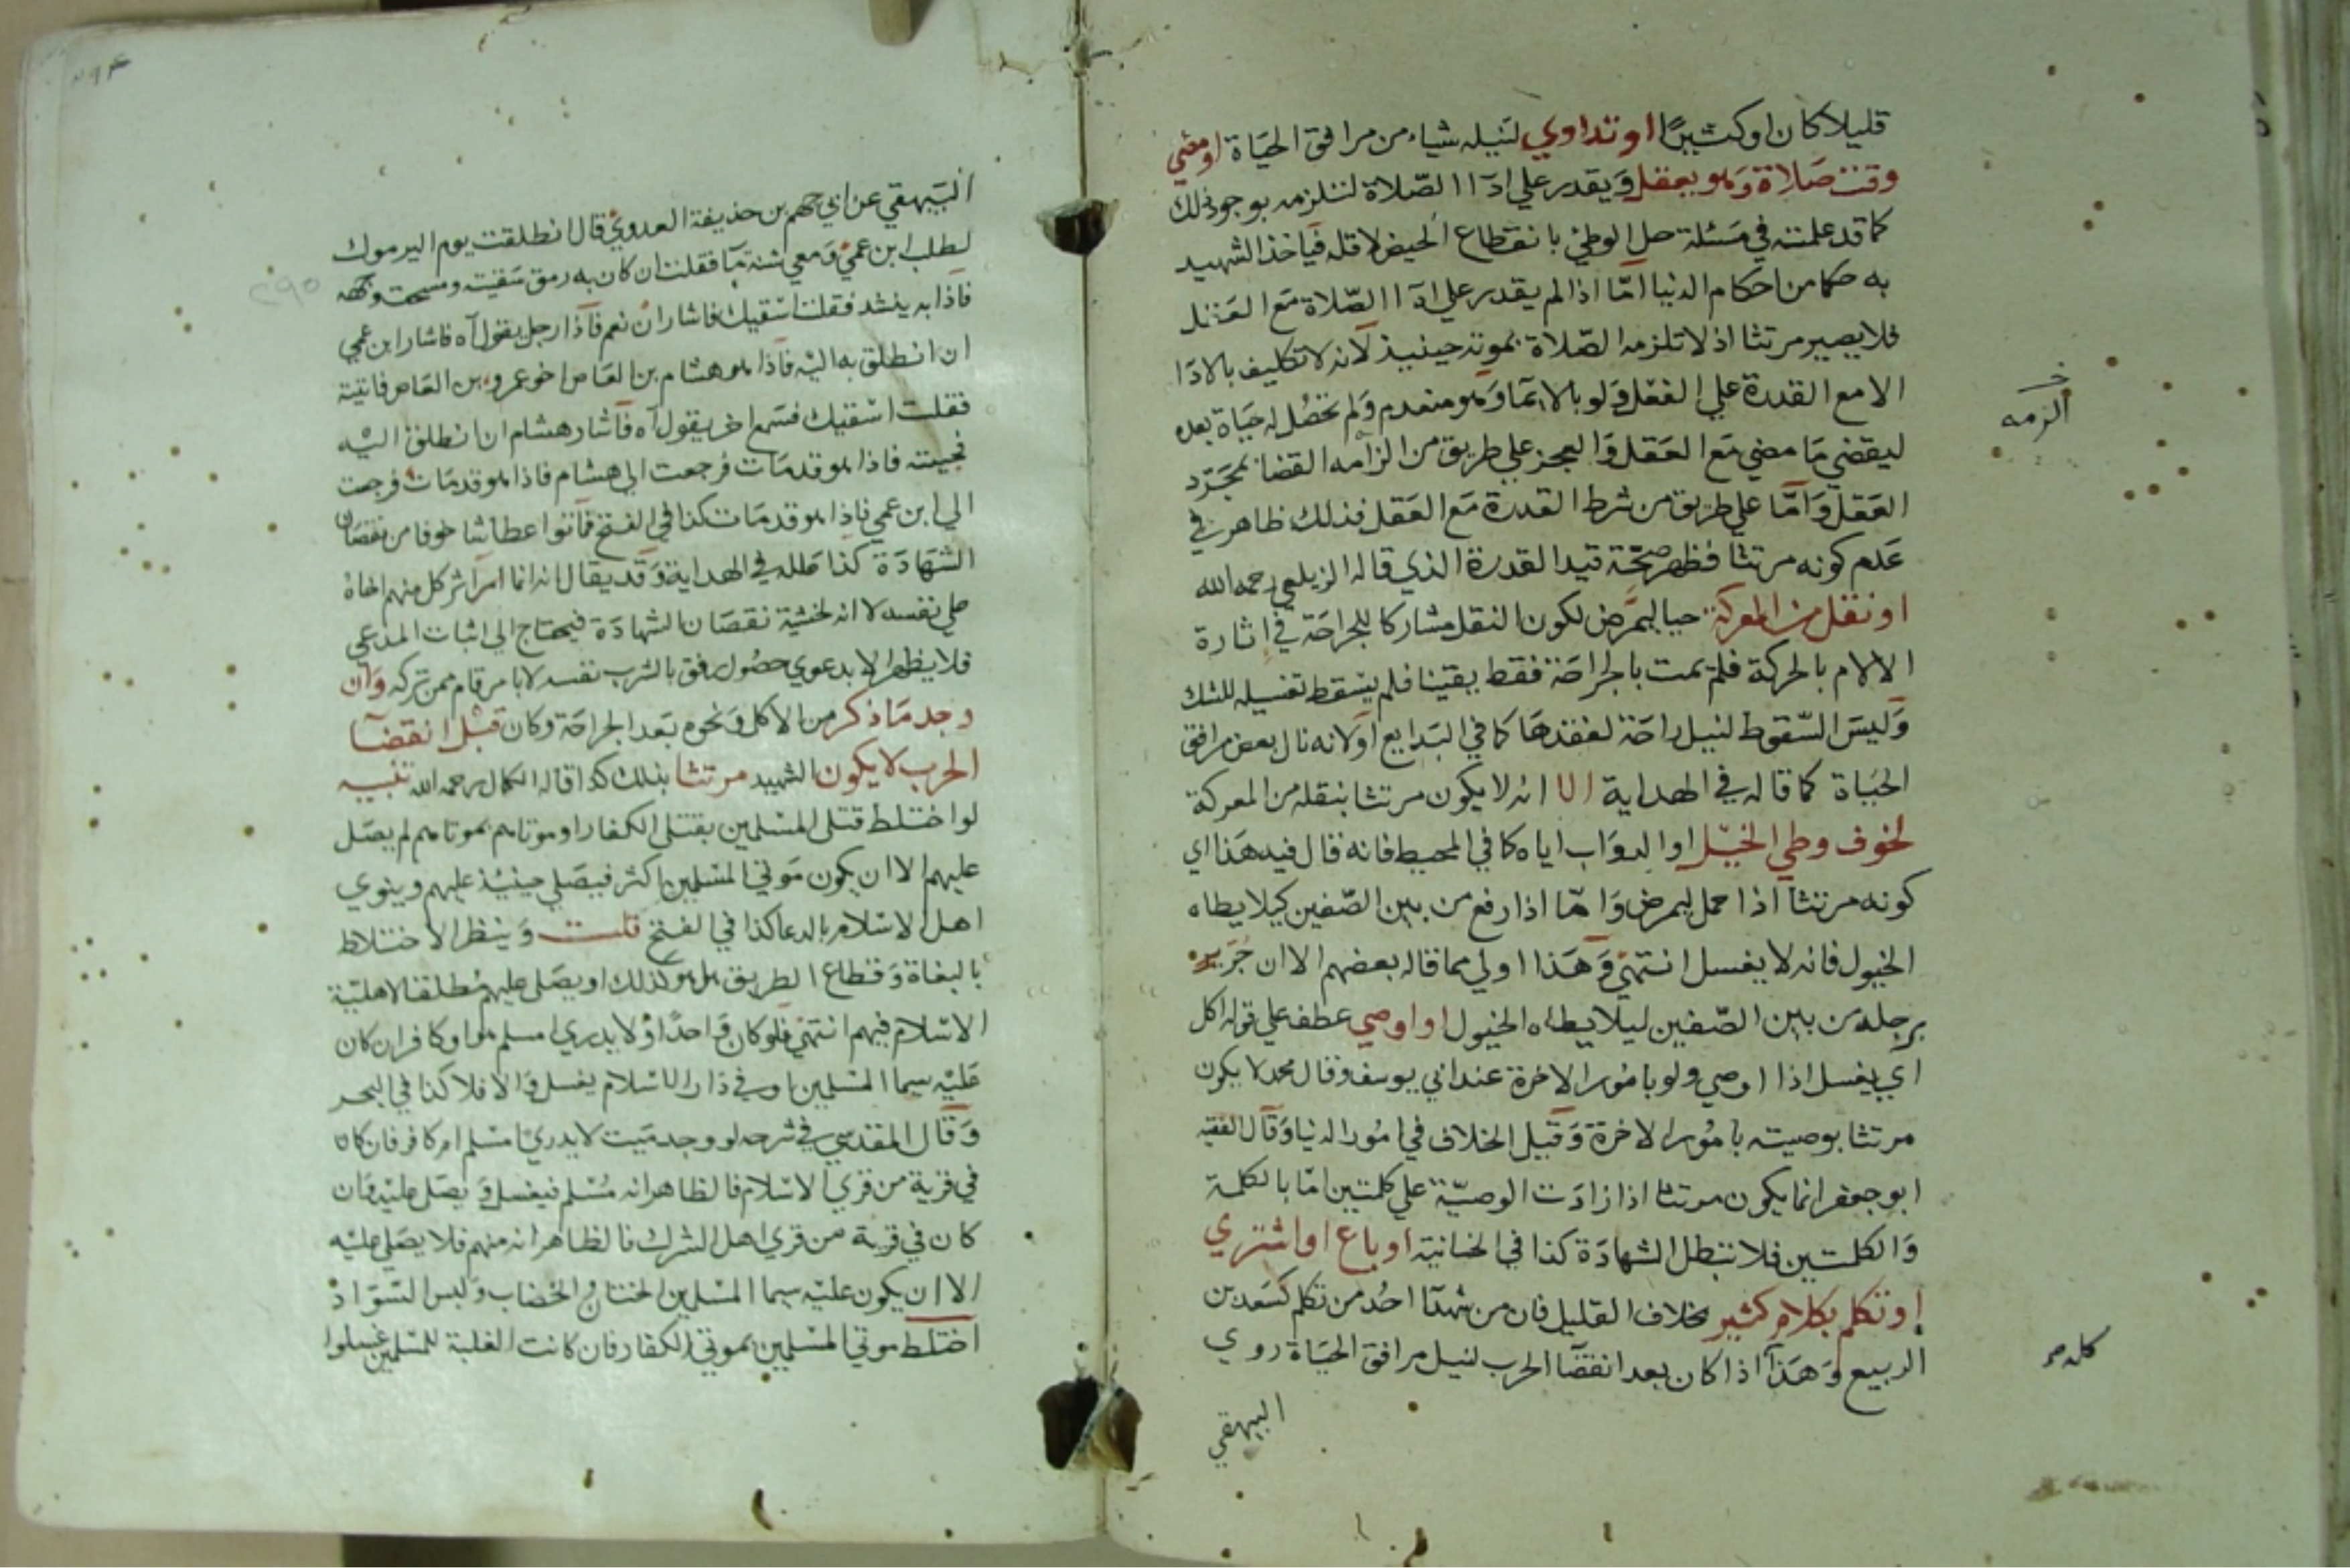 قليلا كان او كثيرا او تداوي لنيله شياء من مرافق الحياة او مضي
وقت صلاة وهو يعقل ويقدر علي ادآ الصلاة لتلزمه بوجوذلك
كما قد علمته في مسئلة حل الوطئ بانقطاع الحيض لاقله فياخذ الشهيد
به حكما من احكام الدنيا امّا اذا لم يقدر علي ادآ الصلاة مع العقل
فلا يصير مرتثا اذ لا تلزمه الصلاة بموته حينيذ لانه لا تكليف بالادا
الا مع القدرة علي الفعل ولو بالايما وهو منعدم ولم تحصل له حياة بعد
ليقضي ما مضي مع العقل والعجز علي طريق من الزامه القضا بمجرد
العقل واما علي طريق من شرط القدرة مع العقل فذلك ظاهر في
عدم كونه مرتثا فظهر صحّة قيد القدرة الذي قاله الزيلعي رحمه الله
او نقل من المعركة حيا ليمرض لكون النقل مشاركا للجراحة في اثارة
الالام بالحركة فلم يمت بالجراحة فقط يقينا فلم يسقط تغسيله للشك
وليس السقوط لنيل راحة لفقدها كما في البدايع او لانه نال بعض مرافق
الحياة كما قاله في الهداية الا انه لا يكون مرتثا بنقله من المعركة
لخوف وطي الخيل او الدواب اياه كما في المحيط فانه قال فيه هذا اي
كونه مرتثا اذا حمل ليمرض وامّا اذا رفع من بين الصّفين كيلا يطاه
الخيول فانه لا يغسل انتهي وهذا اولي مما قاله بعضهم الا ان جر
برجله من بين الصّفين ليلا يطاه الخيول او اوصي عطف علي قوله اكل
اي يغسل اذا اوصي ولو بامور الاخرة عند ابي يوسف وقال محمد لا يكون
مرتثا بوصيته بامور الاخرة وقيل الخلاف في امور الدنيا وقال الفقيه
ابو جعفر انما يكون مرتثا اذا زادت الوصيّة علي كلمتين امّا بالكلمة
والكلمتين فلا تبطل الشهادة كذا في الخانية او باع او اشتري
او تكلم بكلام كثير بخلاف القليل فان من شهدآ احد من تكلم كسعد بن
الربيع وهذا اذا كان بعد انقضآ الحرب لنيل مرافق الحياة روي
البيهقي
الزمه
البيهقي عن ابي جهم بن حذيفة العدوي قال انطلقت يوم اليرموك
لطلب ابن عمي ومعي شنة مآ فقلت ان كان به رمق سقيته ومسحت وجهه
فاذا به ينشد فقلت اسقيك فاشار ان نعم فاذا رجل يقول آه فاشار ابن عمي
ان انطلق به اليه فاذا هو هشام بن العاص اخو عمرو بن العاص فاتيته
فقلت اسقيك فسمع اخر يقول آه فاشار هشام ان انطلق اليه
فجيته فاذا هو قد مات فرجعت الي هشام فاذا هو قد مات فرجعت
الي ابن عمي فاذا هو قد مات كذا في الفتح فماتوا عطاشا خوفا من نقصان
الشهادة كذا علله في الهداية وقد يقال انه انما اثر كل منهم اخاه
علي نفسه لا انه لخشية نقصان الشهادة فيحتاج الي اثبات المدعي
فلا يظهر الا بدعوي حصول رفق بالشرب نفسه لا بامر قام ممن تركه وان
وجد ما ذكر من الاكل ونحوه بعد الجراحة وكان قبل انقضآ
الحرب لا يكون الشهيد مرتثا بذلك كذا قاله الكمال رحمه الله تنبيه
لو اختلط قتلي المسلمين بقتلي الكفار او موتاهم بموتاهم لم يصل
عليهم الا ان يكون موتي المسلمين اكثر فيصلي حينيذ عليهم وينوي
اهل الاسلام بالدعا كذا في الفتح قلت وينظر الاختلاط
بالبغاة وقطاع الطريق هل هو كذلك او يصلي عليهم مطلقا لاهلية
الاسلام فيهم انتهي فلو كان واحدا ولا يدري امسلم هو او كافر ان كان
عليه سيما المسلمين او في دار الاسلام يغسل والا فلا كذا في البحر
وقال المقدسي في شرحه لو وجد ميت لا يدري امسلم ام كافر فان كان
في قرية من قري الاسلام فالظاهر انه مسلم فيغسل ويصلي عليه وان
كان في قرية من قري اهل الشرك فالظاهر انه منهم فلا يصلي عليه
الا ان يكون عليه سيما المسلمين الختان والخضاب ولبس السواد
اختلط موتي المسلمين بموتي الكفار فان كانت الغلبة للمسلمين غسلوا
٢٩٥